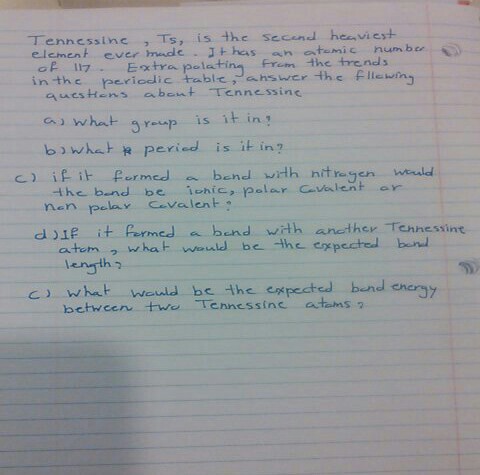 Tennessine , Ts, is the second heaviest
element ever made . It has an atomic number
of 117 . Extrapolating from the trends
in the periodic table, answer the fllowing
questions about Tennessine
a) what group is it in?
b) what period is it in?
c) if it formed a bond with nitrogen would
the bond be ionic, polar covalent or
non polar covalent?
d) If it formed a bond with another Tennessine
atom , what would be the expected bond
length?
c) what would be the expected bond energy
between two Tennessine atoms ?